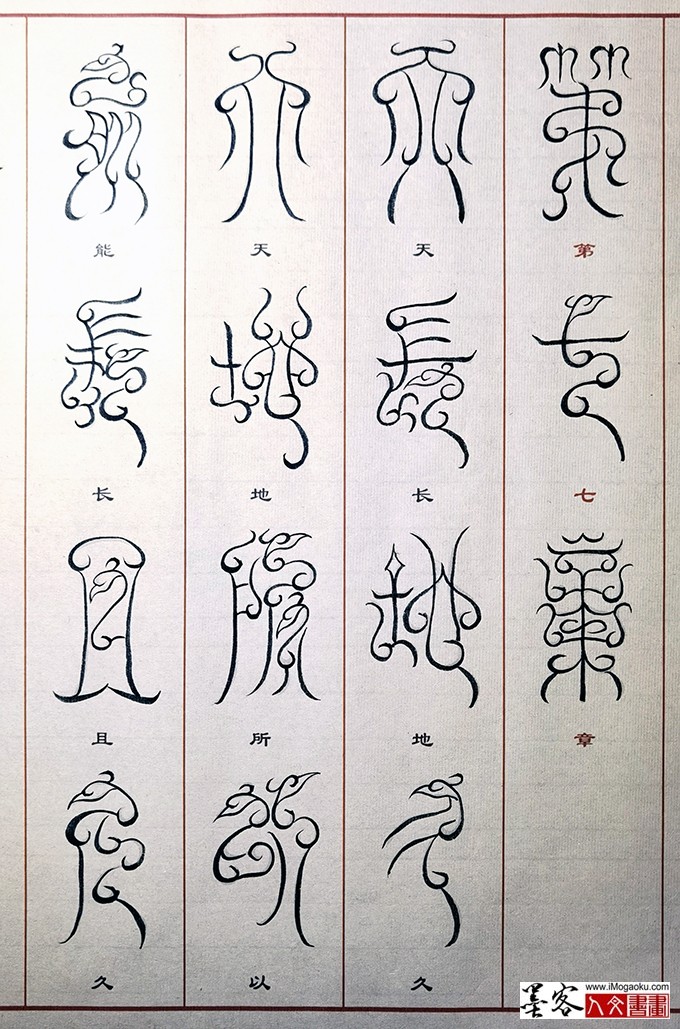 第七章
天长地久
天地所以
能长且久
墨客
www.iMogaoku.com
人文書畫